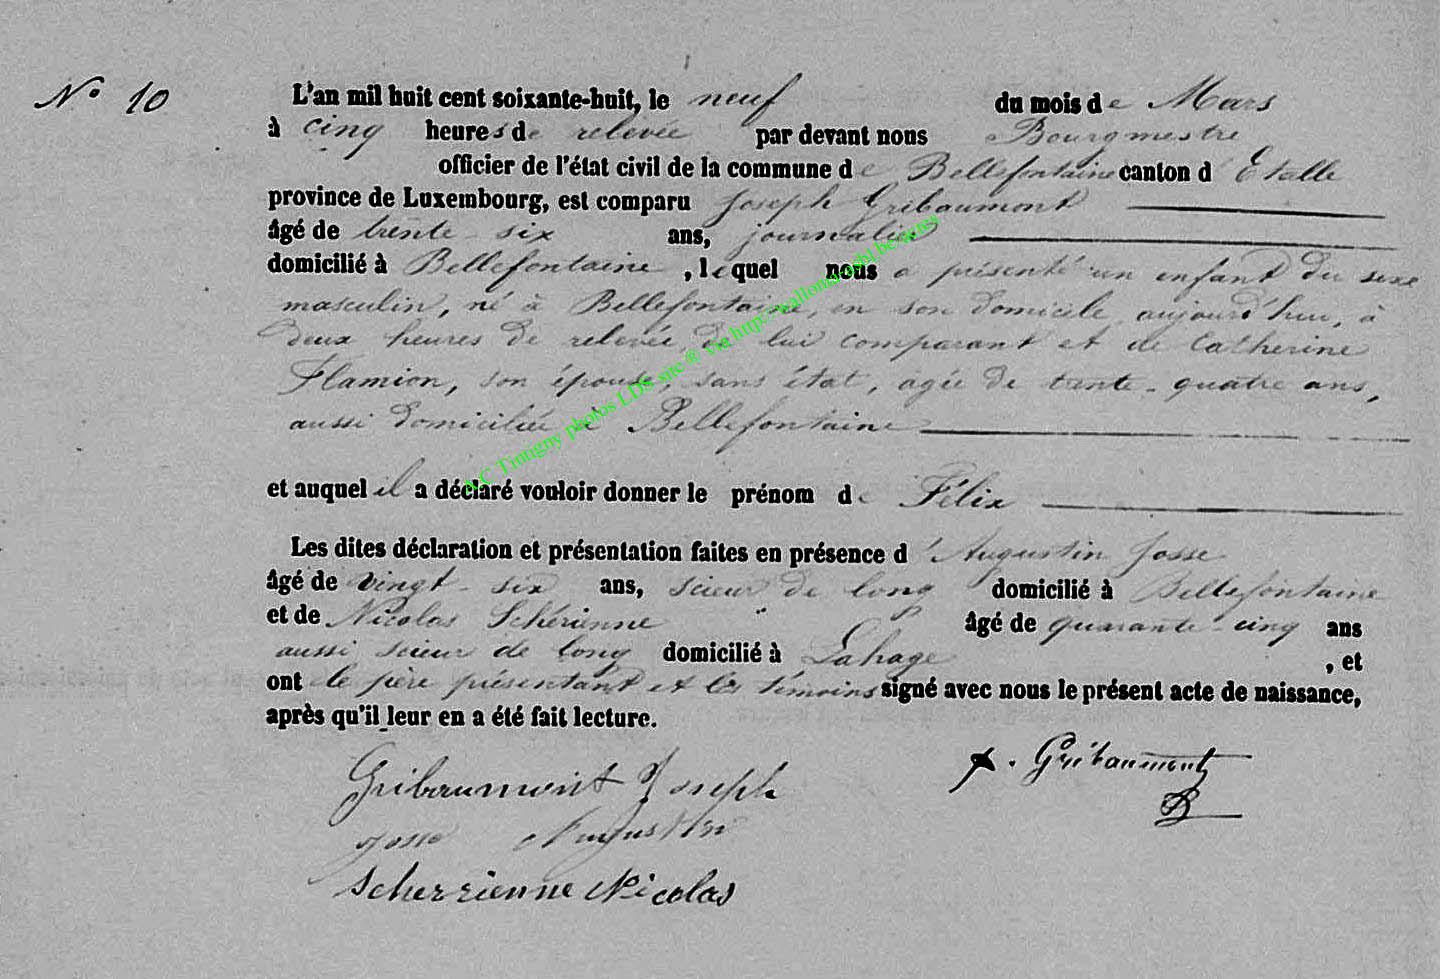 N° 10
L'an mil huit cent soixante-huit, le neuf du mois de Mars
à cinq heures de relevée par devant nous Bourgmestre
officier de l'état civil de la commune de Bellefontaine canton d'Etalle
province de Luxembourg, est comparu Joseph Gribaumont
âgé de trente-six ans, journalier
domicilié à Bellefontaine, lequel nous a présenté un enfant du sexe
masculin, né à Bellefontaine, en son domicile, aujourd'hui, à
deux heures de relevée, de lui comparant et de Catherine
Flamion, son épouse, sans état, agée de trente-quatre ans,
aussi domiciliée à Bellefontaine
et auquel il a déclaré vouloir donner le prénom de Félix
Les dites déclaration et présentation faites en présence d'Augustin Josse
âgé de vingt-six ans, scieur de long domicilié à Bellefontaine
et de Nicolas Schérienne âgé de quarante-cinq ans
aussi scieur de long domicilié à Lahage, et
ont le père présentant et les témoins signé avec nous le présent acte de naissance,
après qu'il leur en a été fait lecture.
Gribaumont Joseph
Gribaumont
Josse Augustin
Scherrienne Nicolas
A.C Tintigny photos LDS site ® via http://wallonia-asbl.be/actes